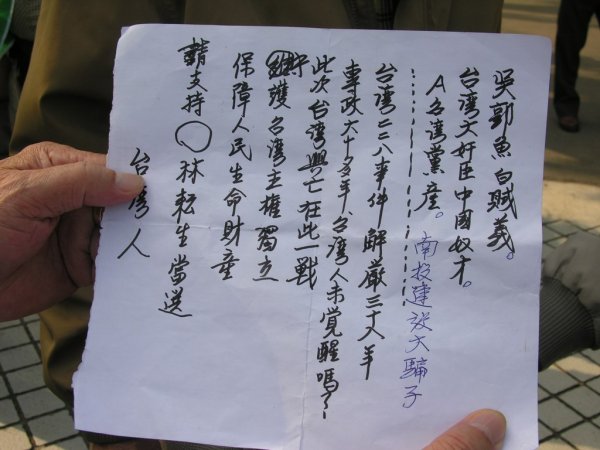 吳郭魚白賊義。
台湾大奸臣中國奴才。
A台湾黨產。南投建設大騙子
台湾二二八事件解嚴三十八年
專政六十多年、台湾人未覺醒嗎?
此次台湾興亡在此一戰
維護台湾主權獨立
保障人民生命財產
請支持○林耘生當選
台灣人